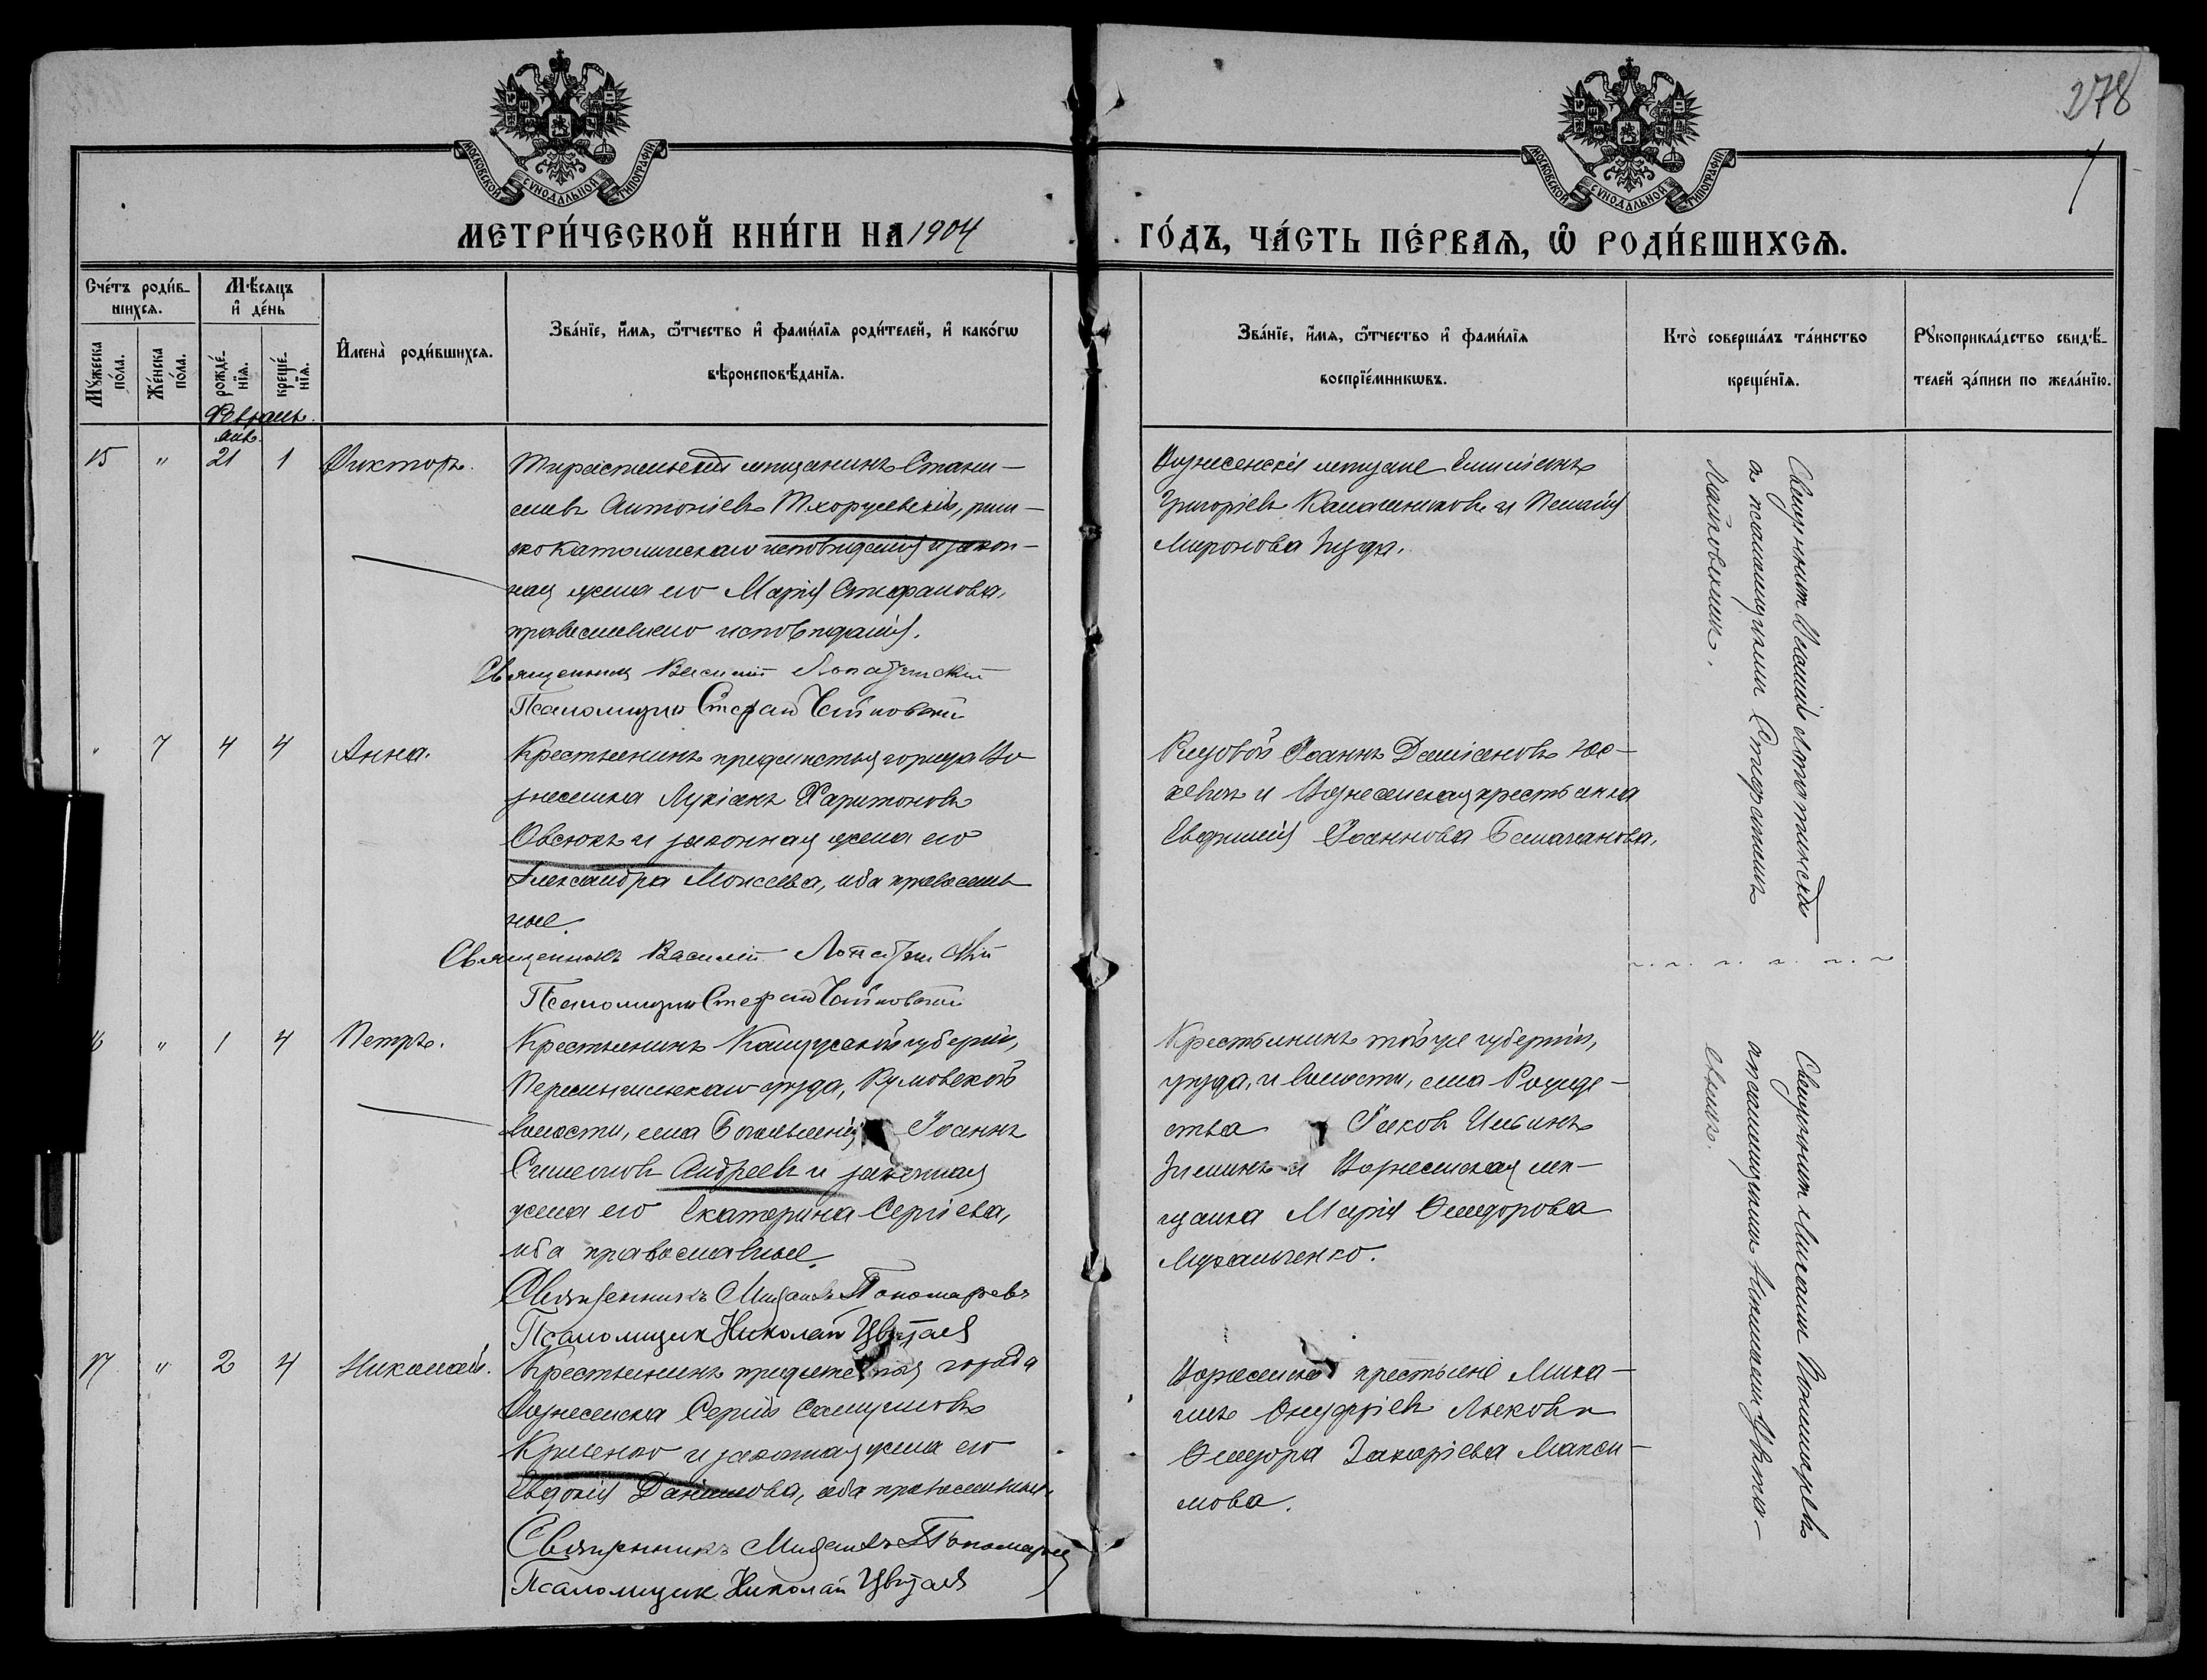 278
МОСКОВСКОЙ СѴНОДАЛЬНОЙ ТИПОГРАФІИ
МОСКОВСКОЙ СѴНОДАЛЬНОЙ ТИПОГРАФІИ
МЕТРИ́ЧЕСКОЙ КНИ́ГИ НА 1904 ГО́ДЪ, ЧА́СТЬ ПЕ́РВАѦ, Ѡ҆ РОДИ́ВШИХСѦ.
Сче́тъ роди́вшихсѧ.
Мꙋ́жеска по́ла.
Же́нска по́ла.
Мѣ́сѧцъ и҆ де́нь
рожде́нїѧ.
креще́нїѧ.
И҆мена̀ роди́вшихсѧ.
Зва́нїе, и҆́мѧ, ѻ҆́тчество и҆ фами́лїѧ роди́телей, и҆ како́гѡ
вѣроисповѣ́данїѧ.
Зва́нїе, и҆́мѧ, ѻ҆́тчество и҆ фами́лїѧ
воспрїе́мникѡвъ.
Кто̀ соверша́лъ та́инство
креще́нїѧ.
Рꙋкоприкла́дство свидѣ́телей за́писи по жела́нїю.
Февраль.
Янв.
15 " 21 1 Викторъ.
Тираспольскій мѣщанинъ Стани-
славъ Антоніевъ Тхоружевскій, рим-
скокатолическаго исповѣданія и закон-
ная жена его Марія Стефанова,
православнаго исповѣданія.
Священникъ Василій Лопатинскій
Псаломщикъ Стефанъ
Вознесенскіе мѣщане Емиліанъ
Григоріевъ Калашниковъ и Пелагія
Миронова
Священникъ Василій Лопатинскій
съ псаломщикомъ Стефаномъ
" 7 4 4 Анна.
Крестьянинъ предмѣстья города Во-
знесенска Лукіанъ Харитоновъ
Овсюкъ и законная жена его
Александра Моисеева, оба православ-
ные.
Священникъ Василій Лопатинскій
Псаломщикъ Стефанъ
Рядовой Іоаннъ Даміановъ
и Вознесенская крестьянка
Евфимія Іоаннова
16 " 1 4 Петръ.
Крестьянинъ Калужской губерніи,
Перемышльскаго уѣзда, Кумовской
волости, села Богоявленія Іоаннъ
Симеоновъ Андреевъ и законная
жена его Екатерина Сергіева,
оба православные.
Священникъ Михаилъ Пономаревъ
Псаломщикъ Николай Цвѣтаевъ
Крестьянинъ той же губерніи,
уѣзда, и волости, села Рожде-
ства Іаковъ Ильинъ
Зиминъ и Вознесенская мѣ-
щанка Марія Ѳеодорова
Священникъ Михаилъ Пономаревъ
съ псаломщикомъ Николаемъ Цвѣта-
евымъ.
17 " 2 4 Николай.
Крестьянинъ предмѣстья города
Вознесенска Сергій Самуиловъ
и законная жена его
Евдокія Даніилова, оба православные.
Священникъ Михаилъ Пономаревъ
Псаломщикъ Николай Цвѣтаевъ
Вознесенскіе крестьяне Миха-
илъ Онуфріевъ и
Ѳеодора Захаріева Макси-
мова.